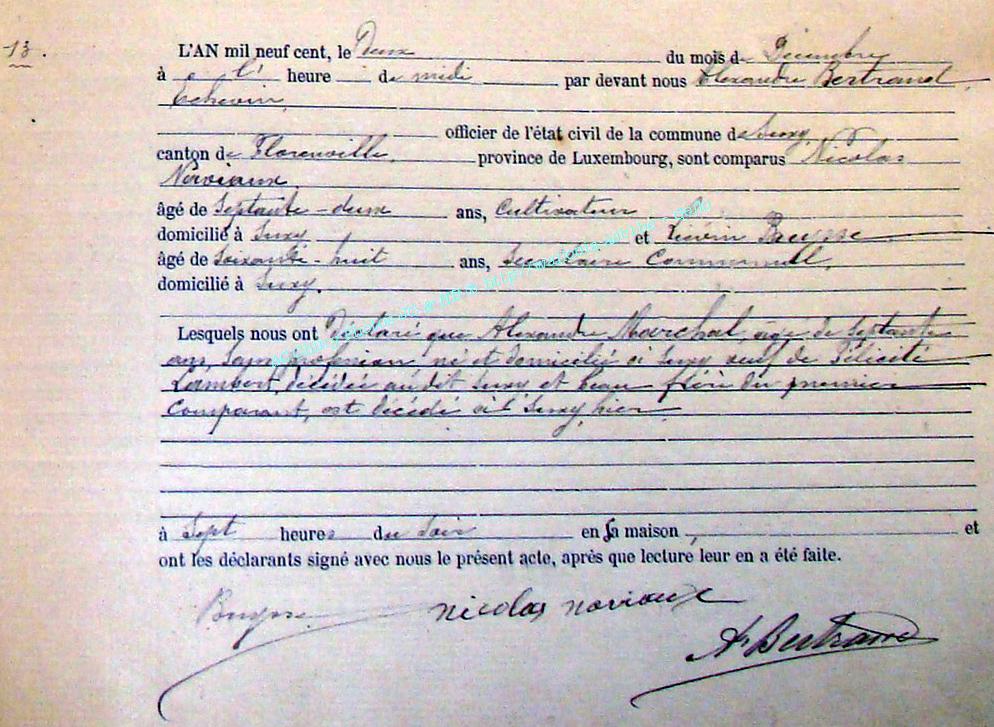 13.
L'AN mil neuf cent, le Deux du mois de Décembre
à l' heure de midi par devant nous Alexandre Bertrand,
Echevin,
officier de l'état civil de la commune de Suxy,
canton de Florenville, province de Luxembourg, sont comparus Nicolas
Noviaux,
âgé de Septante-deux ans, Cultivateur
domicilié à Suxy et Buysse
âgé de Soixante-huit ans, Secrétaire Communal,
domicilié à Suxy.
Lesquels nous ont Déclaré que Alexandre Marchal, âgé de Septante
ans, Sans profession né et domicilié à Suxy veuf de Félicité
Lambert, décédée audit Suxy et beau frère du premier
Comparant, est décédé à Suxy, hier
à Sept heures du Soir en sa maison, et
ont les déclarants signé avec nous le présent acte, après que lecture leur en a été faite.
Buysse nicolas noviaux
Ax Bertrand